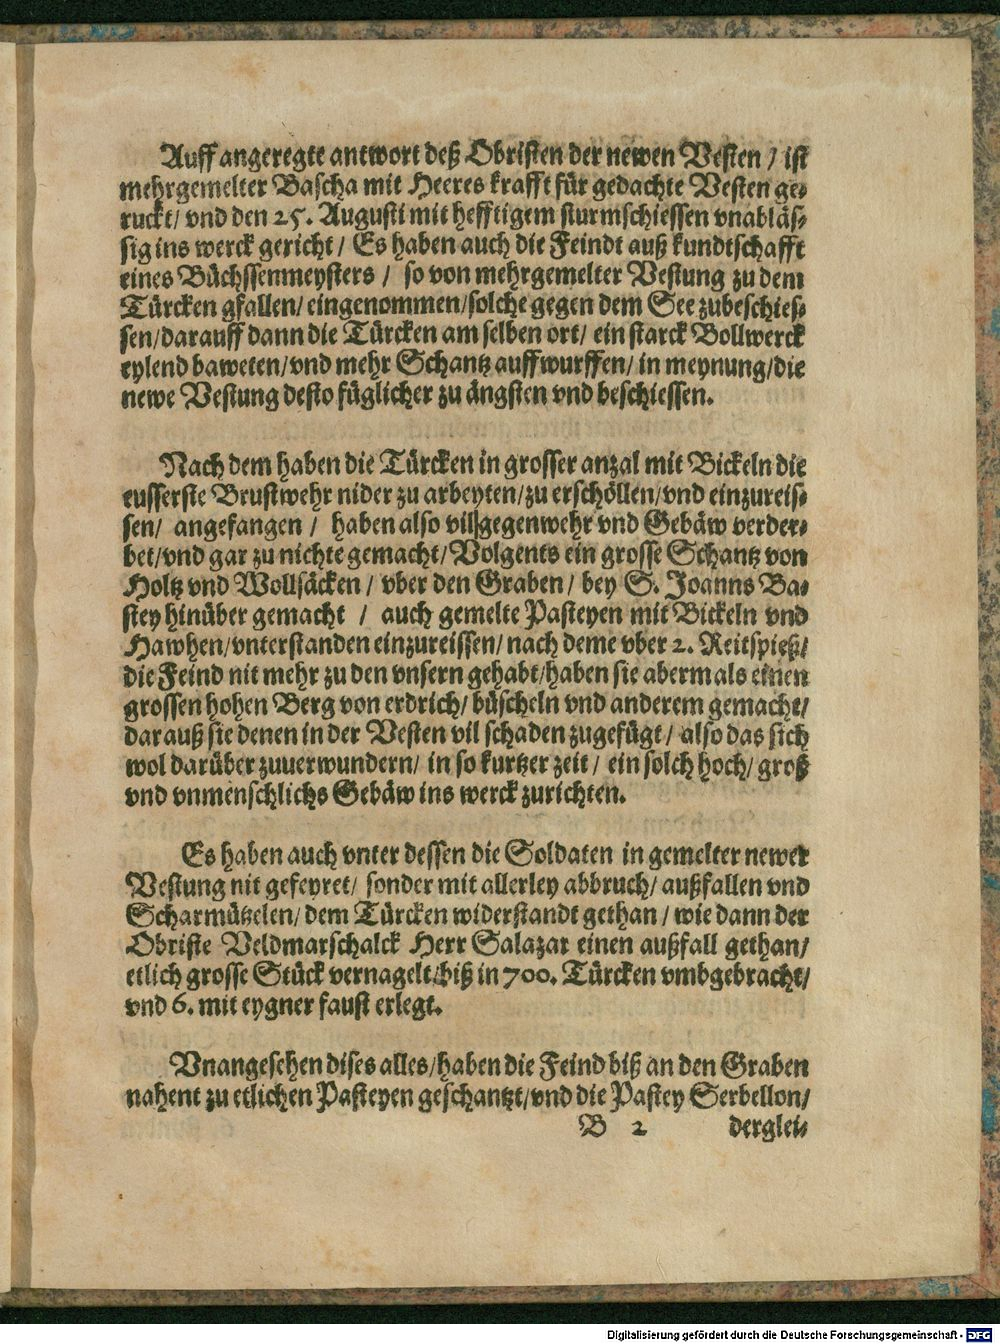 Auff angeregte antwort deß Obristen der newen Vesten / ist
mehrgemelter Bascha mit Heeres krafft für gedachte Vesten ge-
ruckt/ vnd den 25. Augusti mit hefftigem sturmschiessen vnabläs-
sig ins werck gericht / Es haben auch die Feindt auß kundtschafft
eines Büchssenmeysters / so von mehrgemelter Vestung zu dem
Türcken gfallen/ eingenommen/solche gegen dem See zubeschies-
sen/darauff dann die Türcken am selben ort/ ein starck Bollwerck
eylend baweten/vnd mehr Schantz auffwurffen/ in meynung/die
newe Vestung desto füglicher zu ängsten vnd beschiessen.
Nach dem haben die Türcken in grosser anzal mit Bickeln die
eusserste Brustwehr nider zu arbeyten/zu erschöllen/vnd einzureis-
sen/ angefangen / haben also vil gegenwehr vnd Gebäw verder-
bet/vnd gar zu nichte gemacht/Volgents ein grosse Schantz von
Holtz vnd Wollsäcken / vber den Graben / bey S. Joanns Ba-
stey hinüber gemacht / auch gemelte Pasteyen mit Bickeln vnd
Hawhen/vnterstanden einzureissen/ nach deme vber 2. Reitspieß/
die Feind nit mehr zu den vnsern gehabt/haben sie abermals einen
grossen hohen Berg von erdrich/ büscheln vnd anderem gemacht/
darauß sie denen in der Vesten vil schaden zugefügt / also das sich
wol darüber zuuerwundern/ in so kurtzer zeit / ein solch hoch/ groß
vnd vnmenschlichs Gebäw ins werck zurichten.
Es haben auch vnter dessen die Soldaten in gemelter newer
Vestung nit gefeyret/ sonder mit allerley abbruch/ außfallen vnd
Scharmützelen/ dem Türcken widerstandt gethan / wie dann der
Obriste Veldmarschalck Herr Salazar einen außfall gethan/
etlich grosse Stück vernagelt/biß in 700. Türcken vmbgebracht/
vnd 6. mit eygner faust erlegt.
Vnangesehen dises alles/haben die Feind biß an den Graben
nahent zu etlichen Pasteyen geschantzt/vnd die Pastey Serbellon/
B 2 derglei-
Digitalisierung gefördert durch die Deutsche Forschungsgemeinschaft - DFG